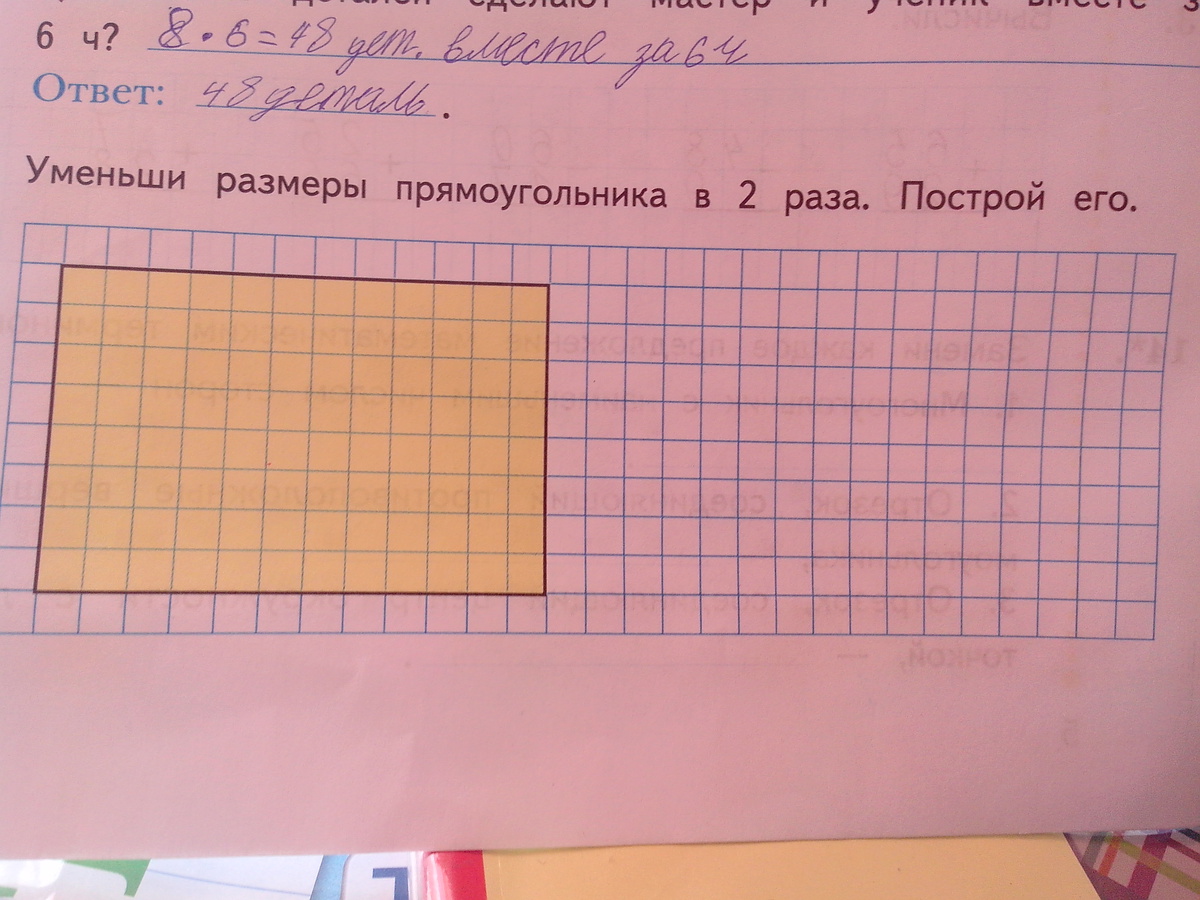 деталей сделают мастер и ученик вместе з
6 ч? 8 • 6 = 48 дет. вместе за 6 ч
Ответ: 48 деталь.
Уменьши размеры прямоугольника в 2 раза. Построй его.